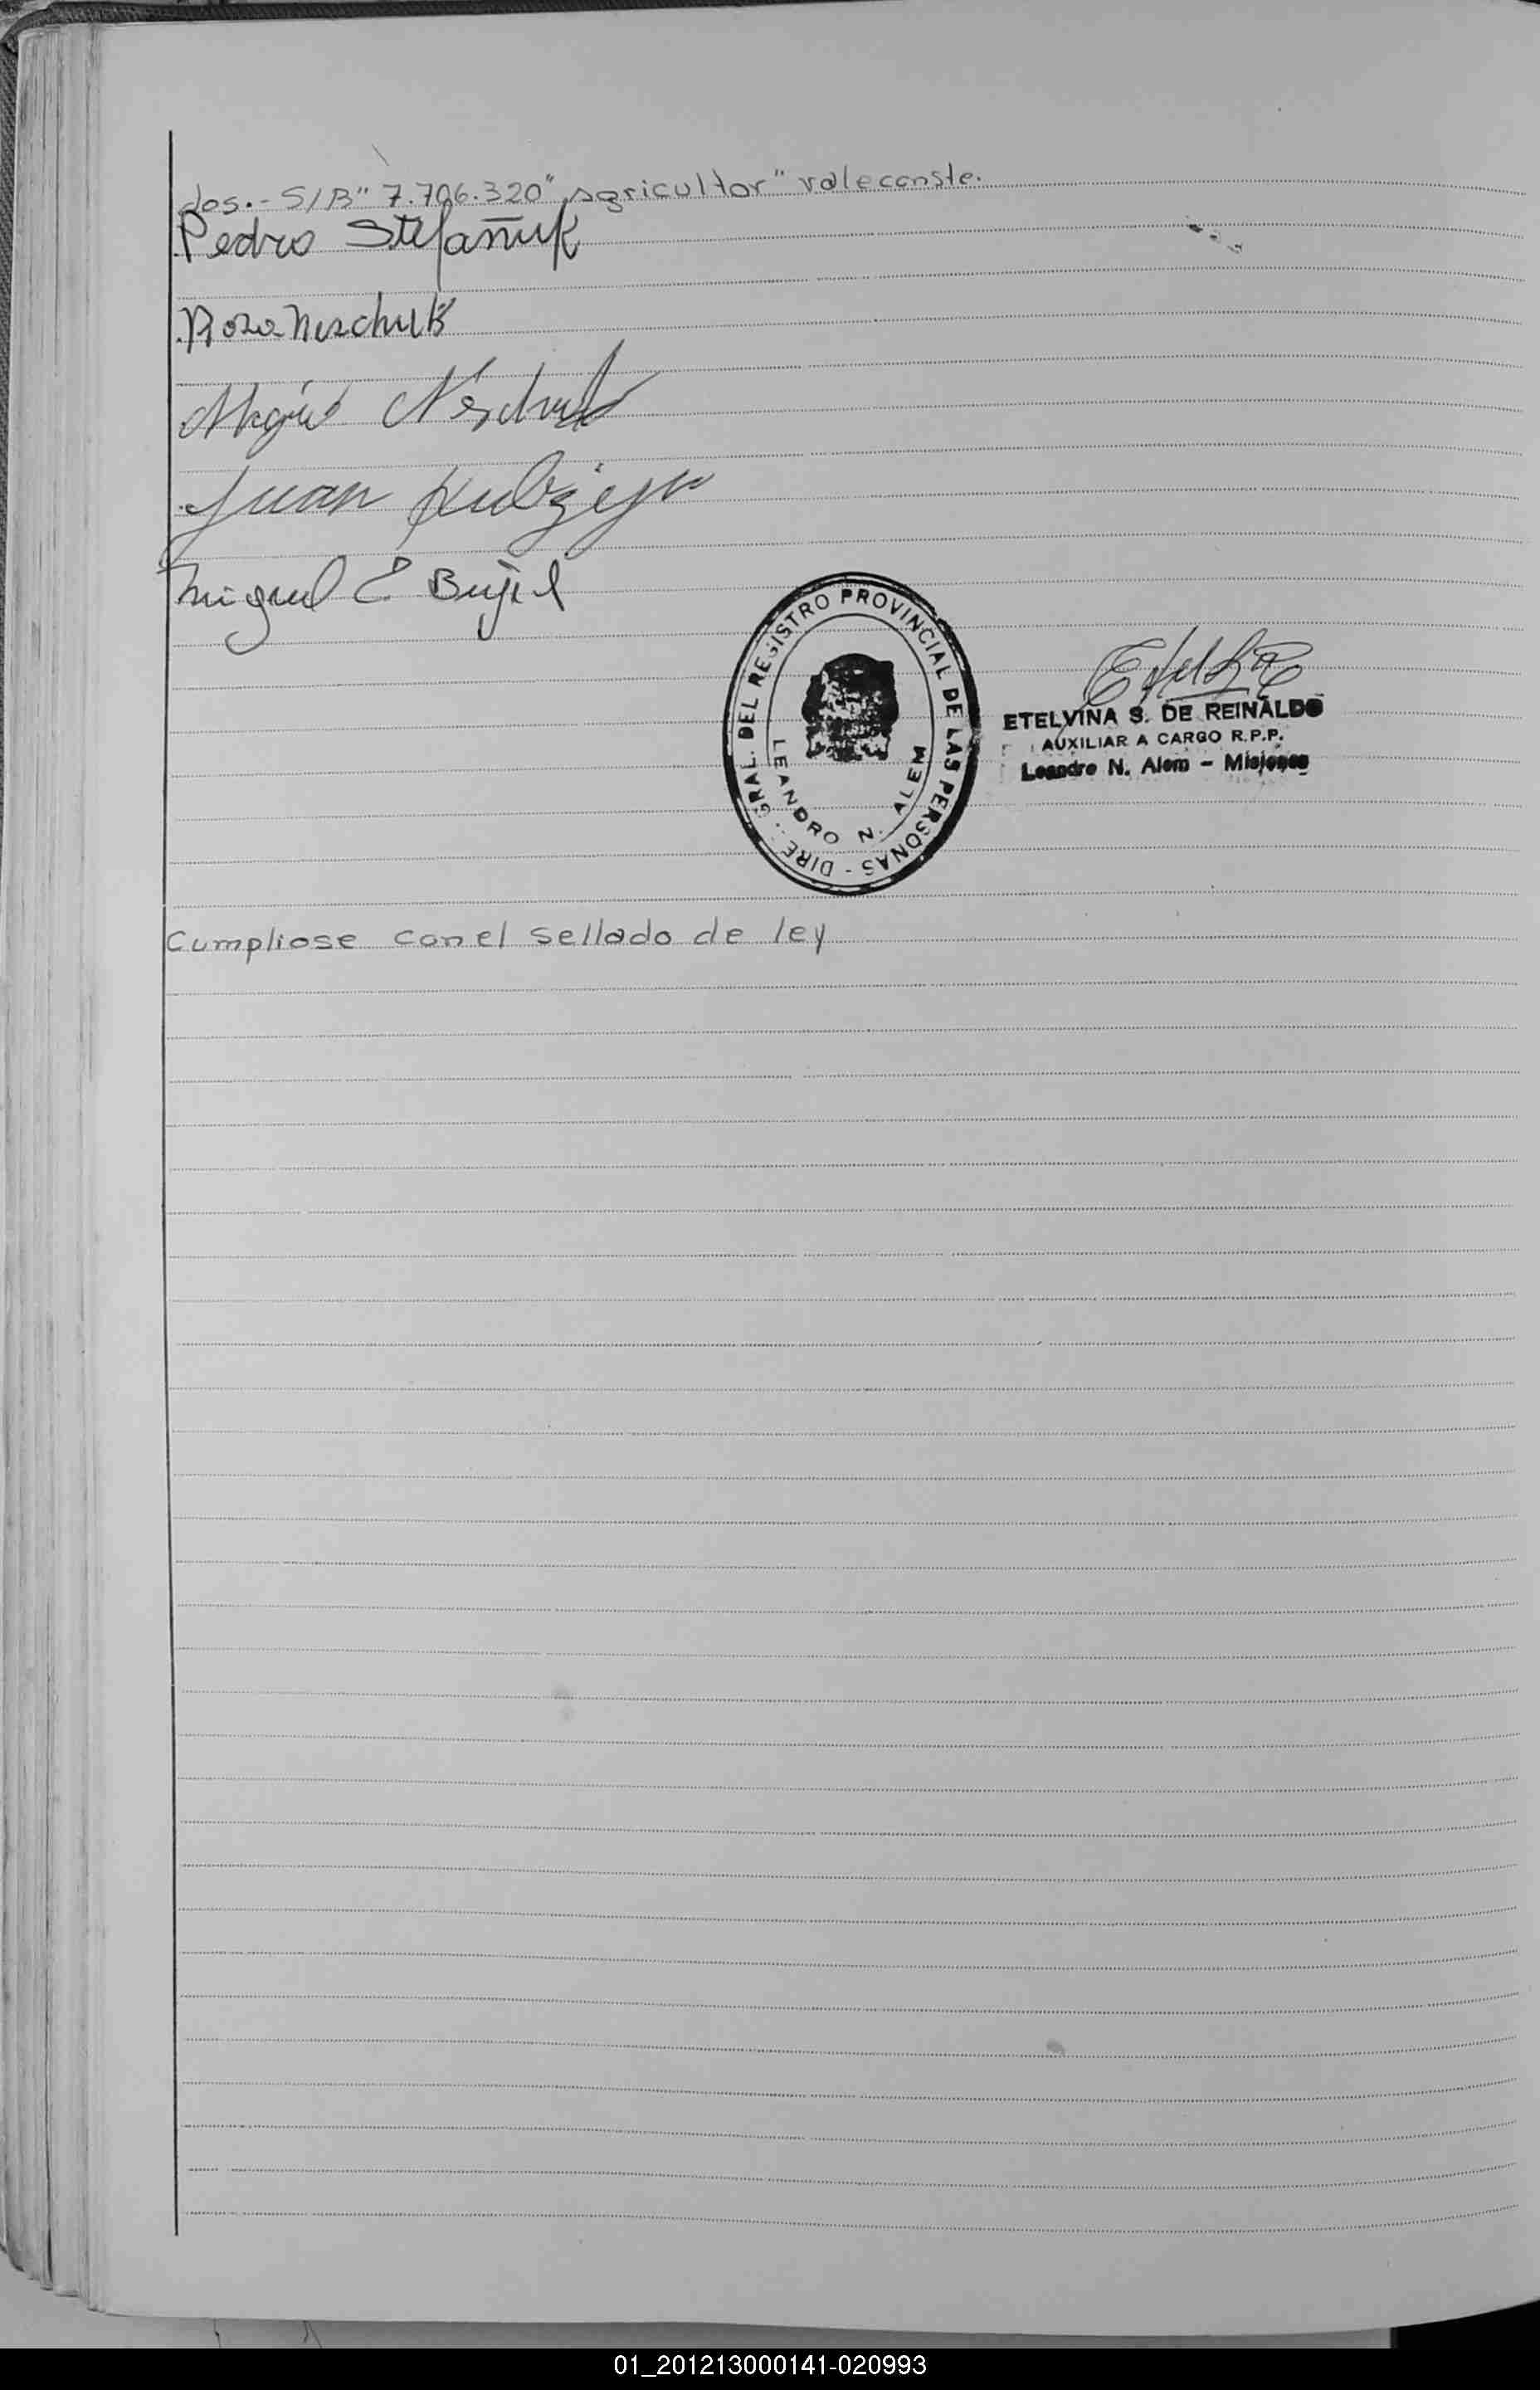 dos.- S/B "7.706.320" "agricultor" vale conste.
Pedro Stefañuk
Rosa Neschuk
Juan
Miguel E
DIRE. GRAL. DEL REGISTRO PROVINCIAL DE LAS PERSONAS -
LEANDRO N. ALEM
ETELVINA S. DE REINALDO
AUXILIAR A CARGO R.P.P.
Leandro N. Alem - Misiones
Cumpliose con el sellado de ley
01_201213000141-020993